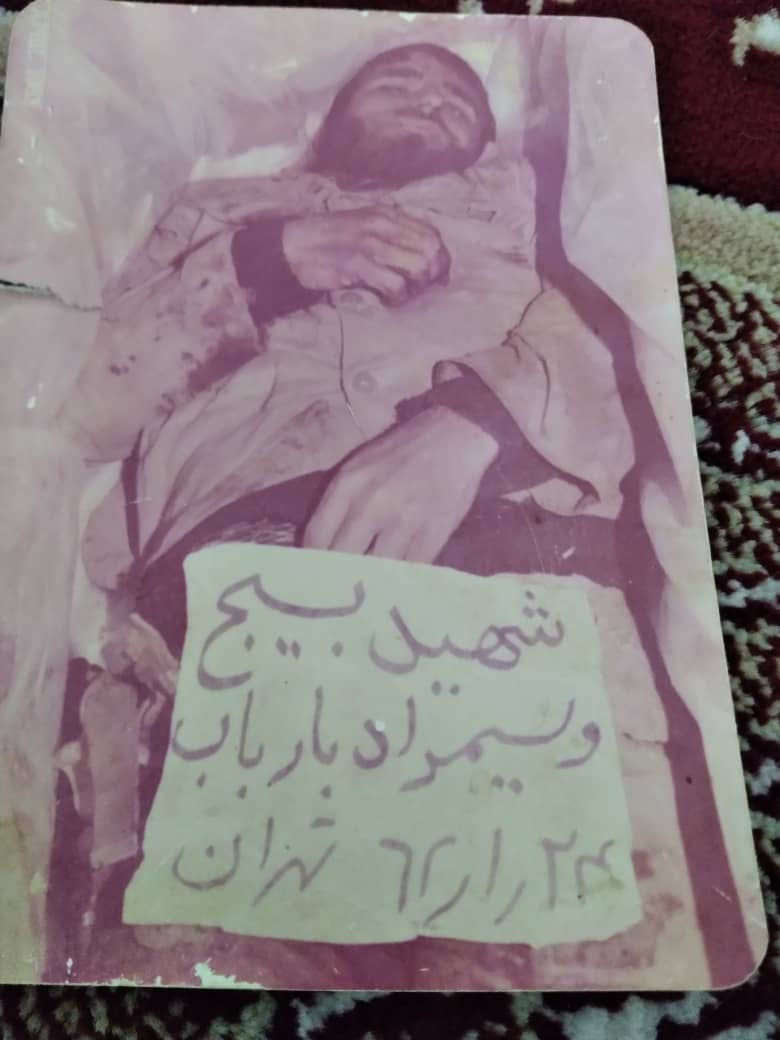 شهید بسیج
ویسمراد بارباب
۲۴ر۱ر۶۲ تهران